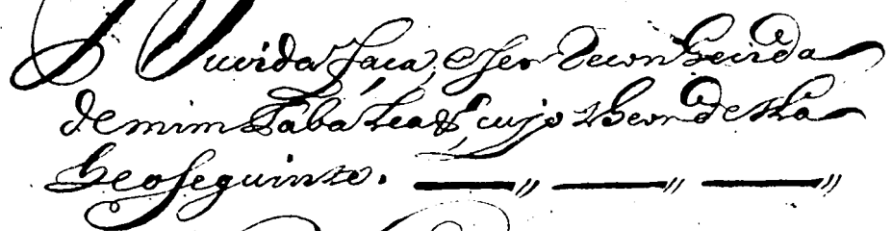 Duvida faça, e ser Reconhecida
de mim Tabaliaõ, cujo theor de tla
he o seguinte.